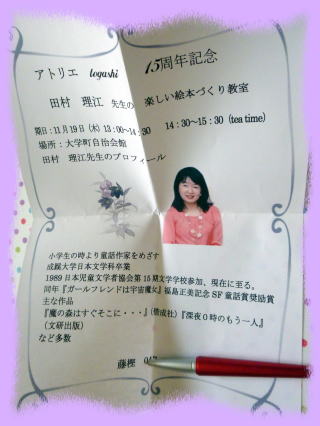 アトリエ togashi 15周年記念
田村 理江 先生の 楽しい絵本づくり教室
期日：11月19日（木）13：00〜14：30 14：30〜15：30（tea time）
場所：大学町自治会館
田村 理江先生のプロフィール
小学生の時より童話作家をめざす
成蹊大学日本文学科卒業
1989 日本児童文学者協会第15期文学学校参加、現在に至る。
同年『ガールフレンドは宇宙魔女』福島正美記念SF童話賞奨励賞
主な作品
『魔の森はすぐそこに・・・』（偕成社）『深夜0時のもう一人』
（文研出版）
など多数
藤樫